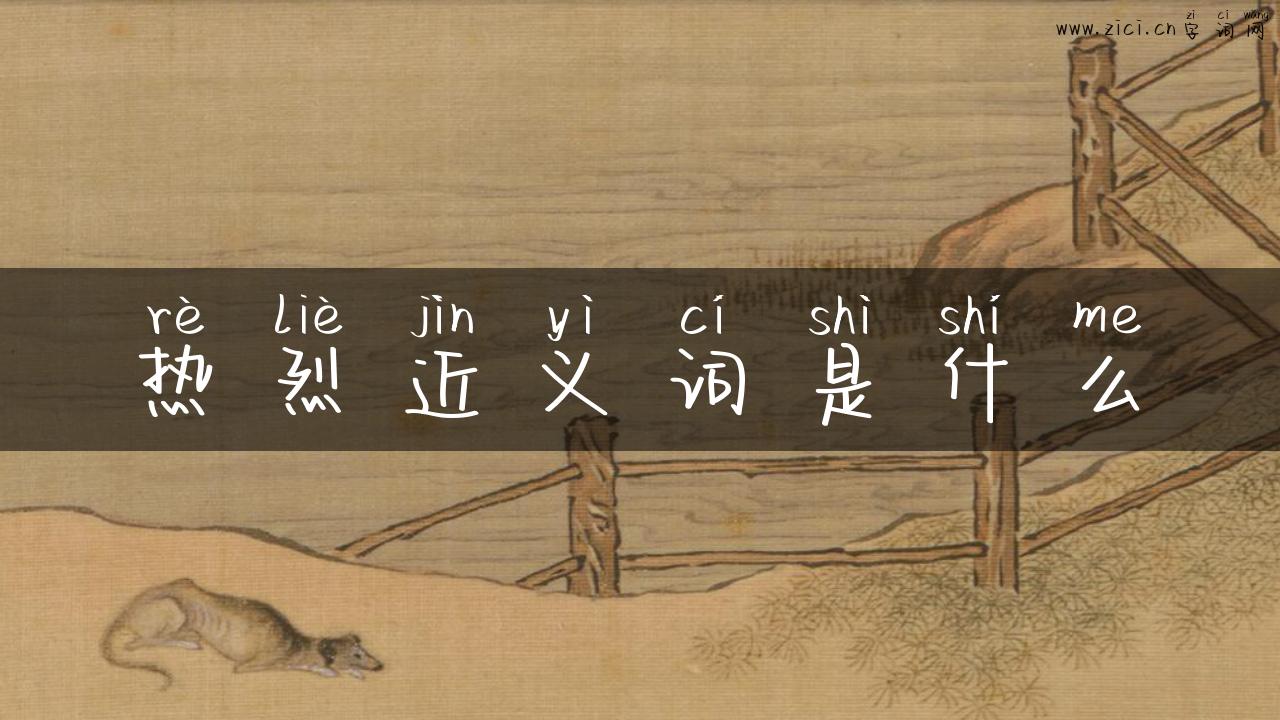 zì cí wǎng
www.zici.cn 字词网
rè liè jìn yì cí shì shí me
热烈近义词是什么